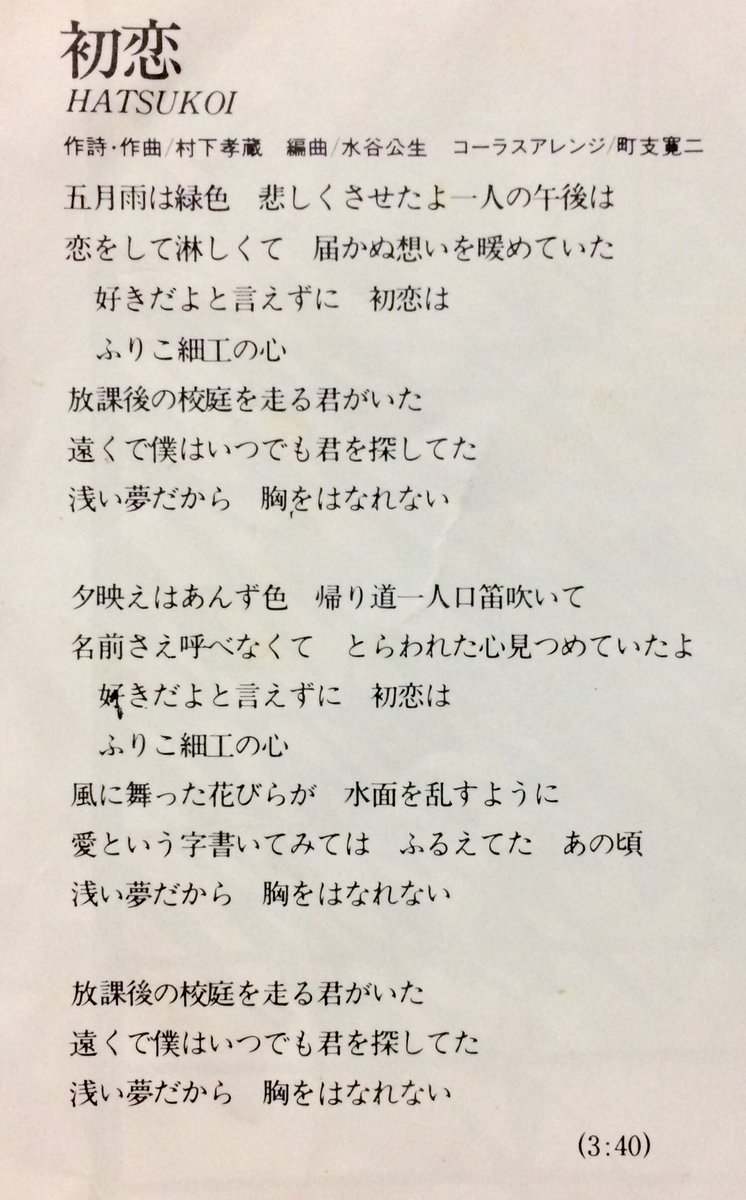 初恋
HATSUKOI
作詩・作曲/村下孝蔵　編曲/水谷公生　コーラスアレンジ/町支寛二
五月雨は緑色　悲しくさせたよ一人の午後は
恋をして淋しくて　届かぬ想いを暖めていた
好きだよと言えずに　初恋は
ふりこ細工の心
放課後の校庭を走る君がいた
遠くで僕はいつでも君を探してた
浅い夢だから　胸をはなれない
夕映えはあんず色　帰り道一人口笛吹いて
名前さえ呼べなくて　とらわれた心見つめていたよ
好きだよと言えずに　初恋は
ふりこ細工の心
風に舞った花びらが　水面を乱すように
愛という字書いてみては　ふるえてた　あの頃
浅い夢だから　胸をはなれない
放課後の校庭を走る君がいた
遠くで僕はいつでも君を探してた
浅い夢だから　胸をはなれない
(3:40)